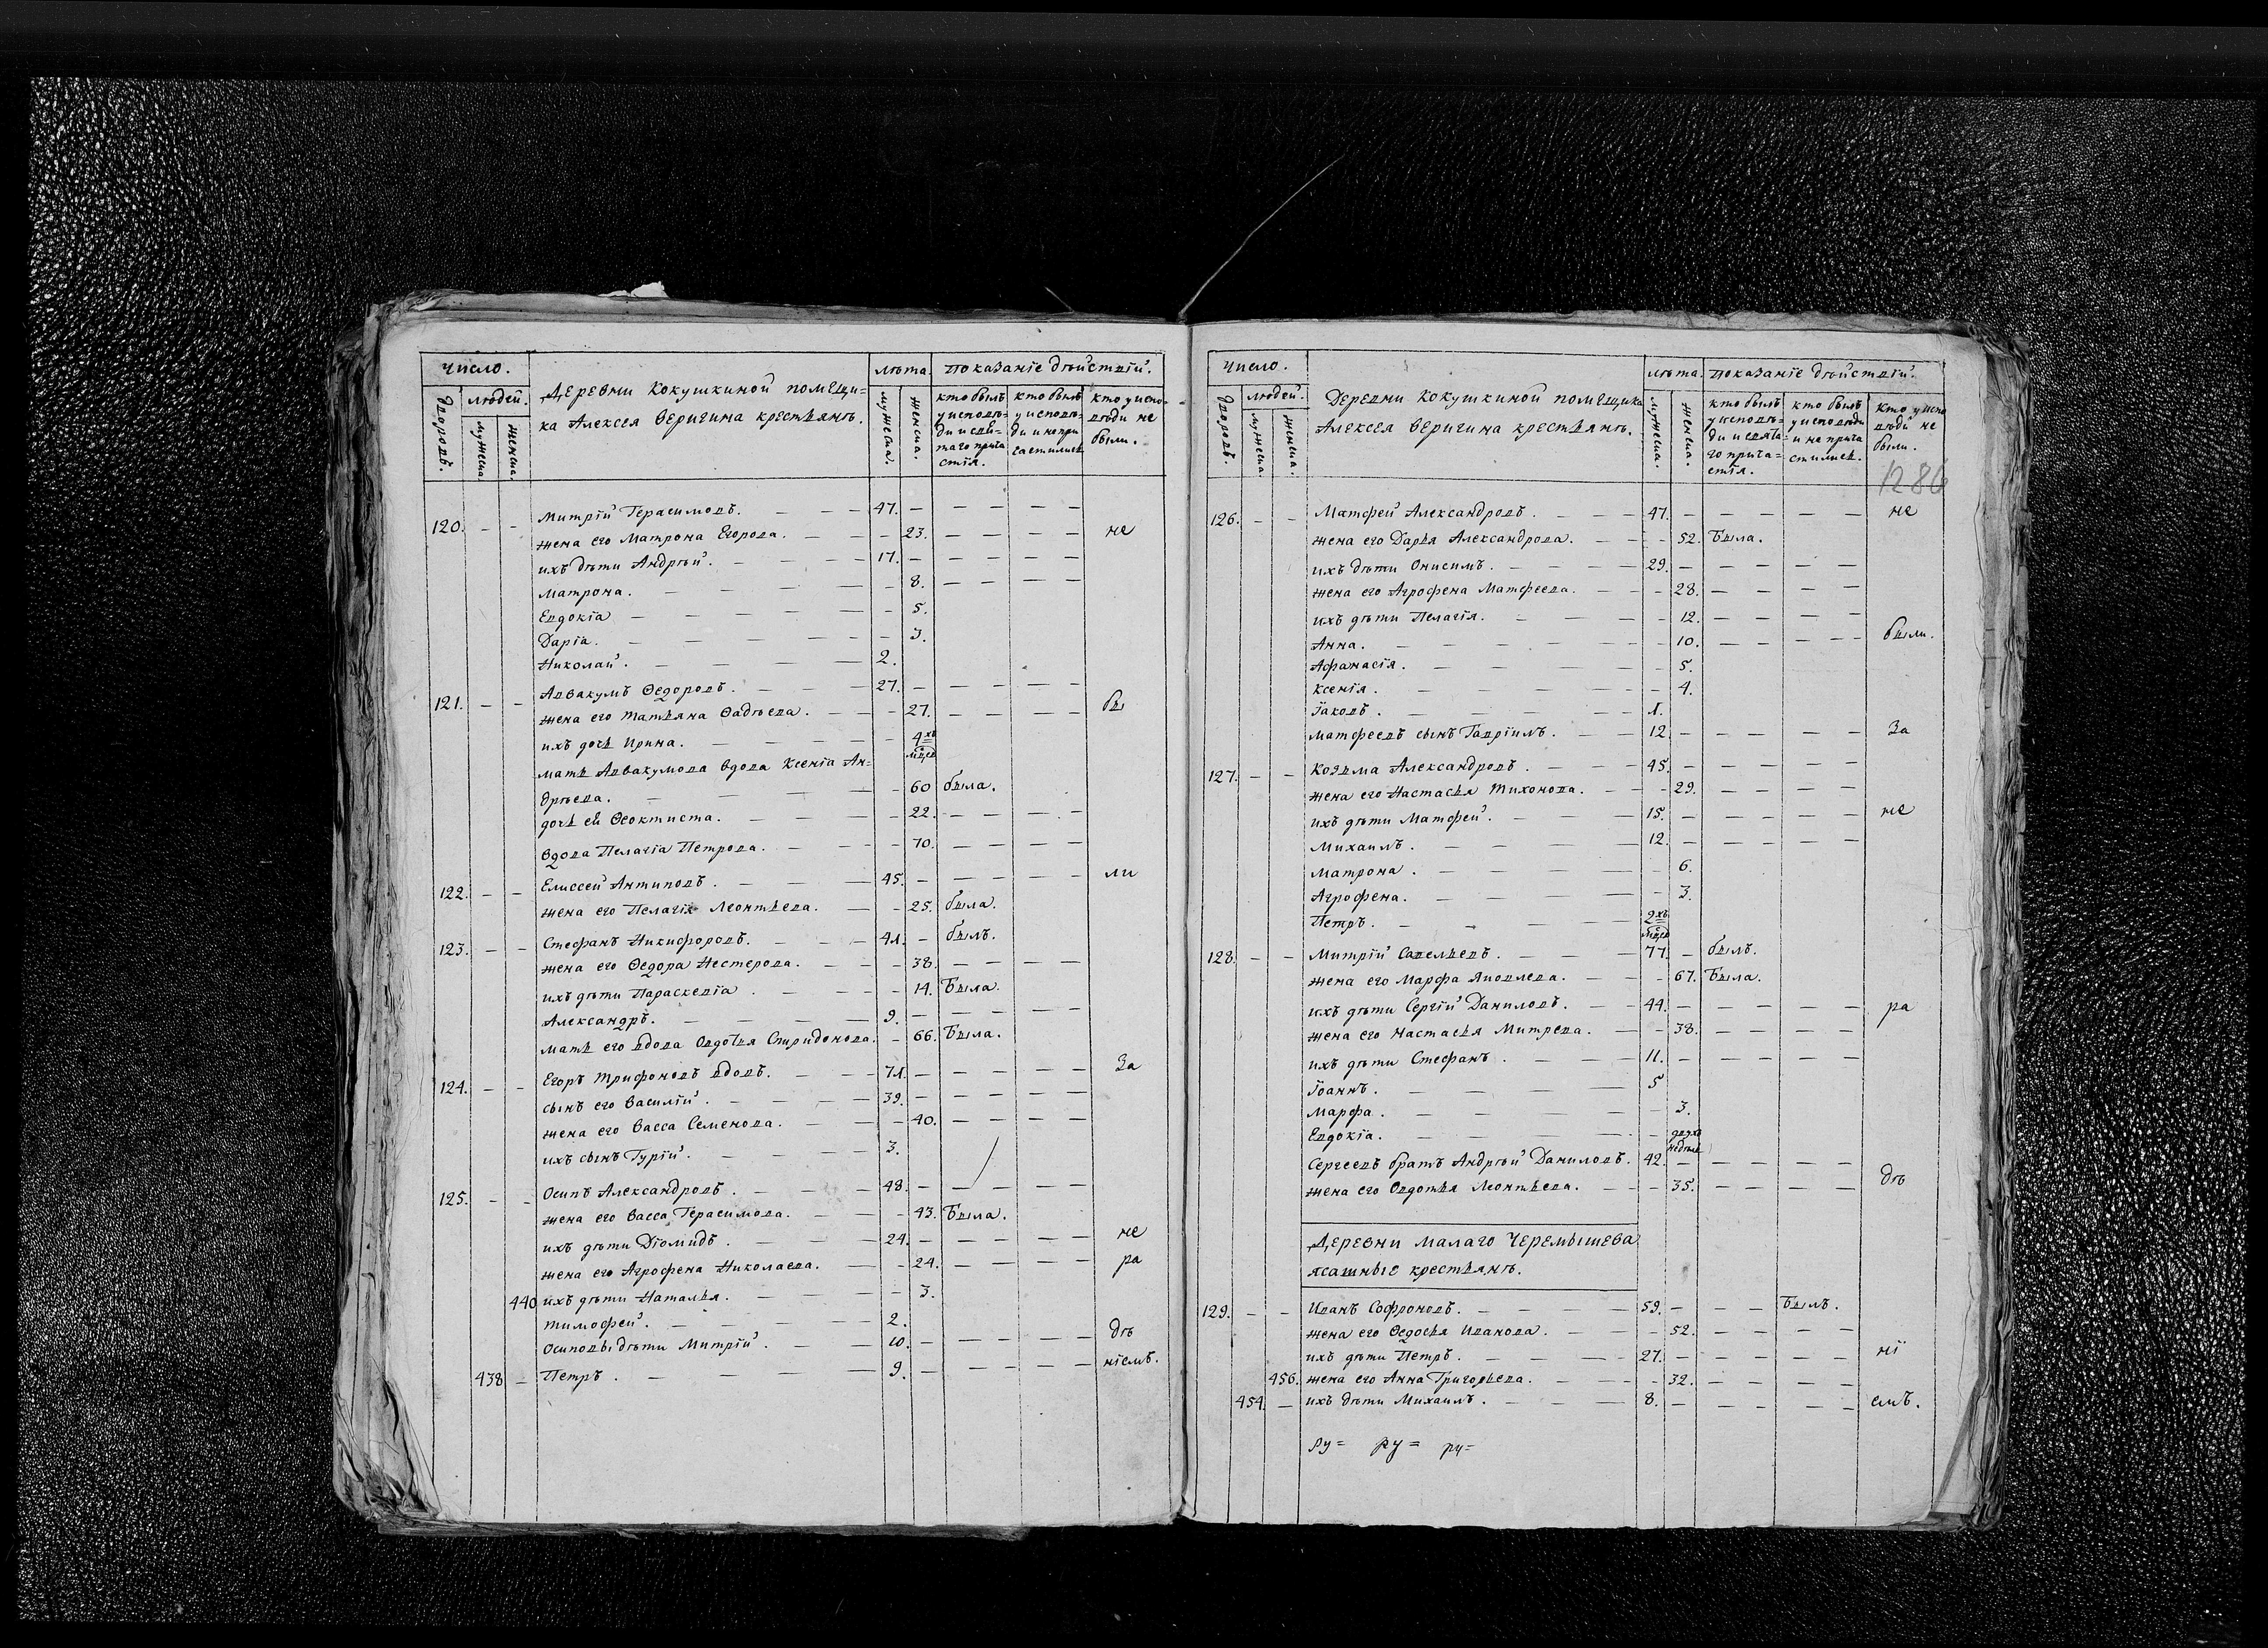 число. | Деревни Кокушкиной помещи= | лѣта. | показаніе дѣйствій.
дворовъ. | людей. | ка Алексея Веригина крестьянъ. | мужеска. | женска. | кто былъ у исповѣ=ди и свя=таго прича стія. | кто былъ у исповѣ=ди и не при частился | кто у испо=вѣди не были.
мужеска. | женска.
120. - - Митрій Герасимовъ. 47.
жена его Матрона Егорова. 23. не
ихъ дѣти Андрѣй. 17.
Матрона. 8.
Евдокіа 5.
Даріа. 3.
Николай. 2.
121. - - Аввакумъ Ѳедоровъ. 27.
жена его Татьяна Ѳадѣева. 27. бы
ихъ дочь Ирина. 4хъ мцев
мать Аввакумова вдова Ксеніа Ан=
дрѣева. 60 была.
дочь ей Ѳеоктиста. 22.
вдова Пелагіа Петрова. 70.
122. - - Елиссей Антиповъ. 45. ли
жена его Пелагія Леонтьева. 25. была.
123. - - Стефанъ Никифоровъ. 41. былъ.
жена его Ѳедора Нестерова. 38.
ихъ дѣти Параскевіа 14. Была.
Александръ. 9.
мать его вдова Овдотья Спиридонова. 66. Была.
124. - - Егоръ Трифоновъ вдовъ. 71. За
сынъ его Василій. 39.
жена его Васса Семенова. 40.
ихъ сынъ Гурій. 3.
125. - - Осипъ Александровъ. 48.
жена его Васса Герасимова. 43. Была.
ихъ дѣти Діомидъ. 24. не
жена его Агрофена Николаева. 24. ра
440 ихъ дѣти Наталья. 3.
Тимофей. 2.
Осиповы дѣти Митрій. 10. дѣ
438 - Петръ. 9. ніемъ.
число. | Деревни Кокушкиной помещика | лѣта. | показаніе дѣйствій.
дворовъ. | людей. | Алексея Веригина крестьянъ. | мужеска. | женска. | кто былъ у исповѣ=ди и свята=го прича=стія. | кто былъ у исповѣди и не прича стился. | кто у испо вѣди не были.
мужеска. | женска.
1286
126. - - Матфей Александровъ. 47. не
жена его Дарья Александрова. 52. Была.
ихъ дѣти Онисимъ. 29.
жена его Агрофена Матфеева. 28.
ихъ дѣти Пелагія. 12.
Анна. 10. были.
Афанасія. 5.
Ксенія. 4.
Іаковъ. 1.
Матфеевъ сынъ Гавріилъ. 12 За
127. - - Козьма Александровъ. 45.
жена его Настасья Тихонова. 29.
ихъ дѣти Матфей. 15. не
Михаилъ. 12.
Матрона. 6.
Агрофена. 3.
Петръ. 2хъ мцев
128. - - Митрій Савельевъ. 77. былъ.
жена его Марфа Яковлева. 67. Была.
ихъ дѣти Сергій Даниловъ. 44. ра
жена его Настасья Митрева. 38.
ихъ дѣти Стефанъ. 11.
Іоаннъ. 5
Марфа. 3.
Евдокіа. двухъ недѣль
Сергеевъ братъ Андрѣй Даниловъ. 42.
жена его Овдотья Леонтьева. 35. дѣ
Деревни малаго Черемышева
ясашные крестьянъ.
129. - - Иванъ Софроновъ. 59. Былъ.
жена его Ѳедосья Иванова. 52.
ихъ дѣти Петръ. 27. ні
456. жена его Анна Григорьева. 32.
454. - ихъ дѣти Михаилъ. 8. емъ.
ру= ру= ру=